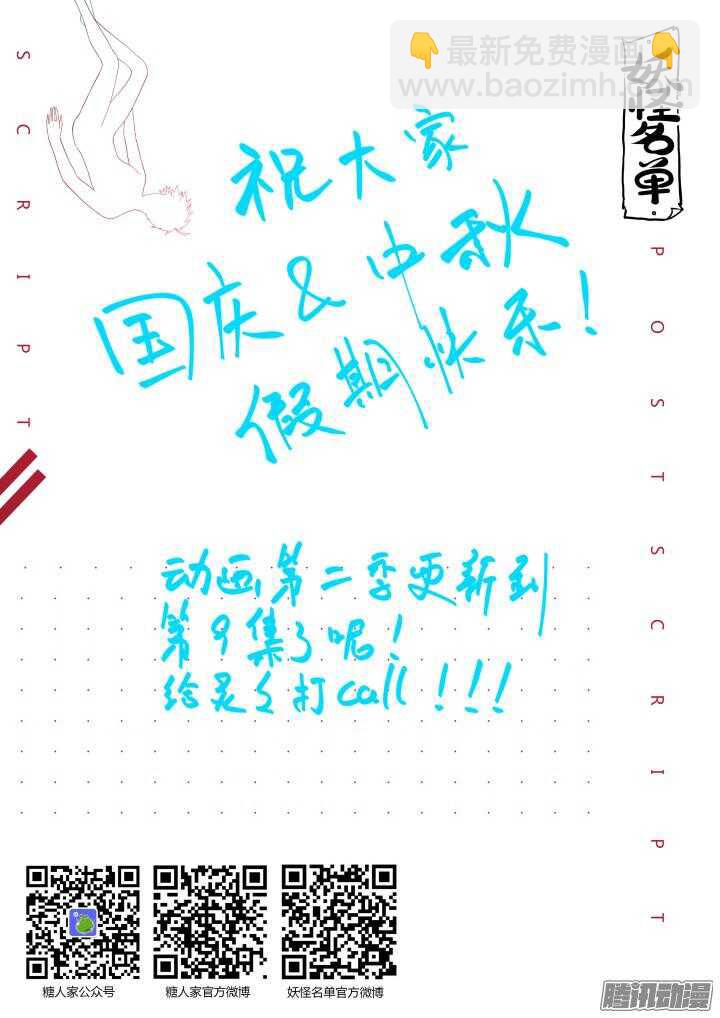 最新免费漫画
www.baozimh.com
妖怪名单
SCRIPT
祝大家
国庆&中秋
假期快乐!
POSTSCRIPT
动画第二季更新到
第9集了呢!
给灵く打call!!!
糖人家公众号
糖人家官方微博
妖怪名单官方微博
腾讯动漫